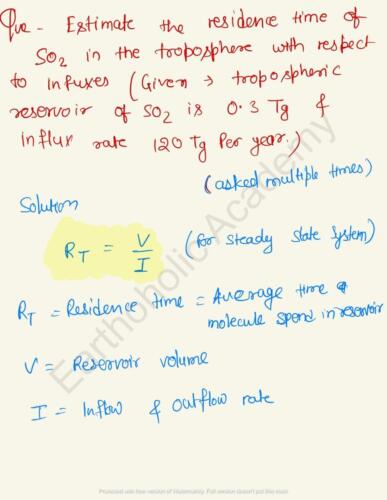 Que - Estimate the residence time of
SO2 in the troposphere with respect
to infuxes (Given → tropospheric
reservoir of SO2 is 0.3 Tg &
influx rate 120 Tg Per year.)
(asked multiple times)
Solution
RT = V/I (for steady state system)
RT = Residence time = Average time a
molecule spend in reservoir
V = Reservoir volume
I = Inflow & outflow rate
Earthoholic Academy
Produced with free version of Watermarkly. Full version doesn't put this mark.